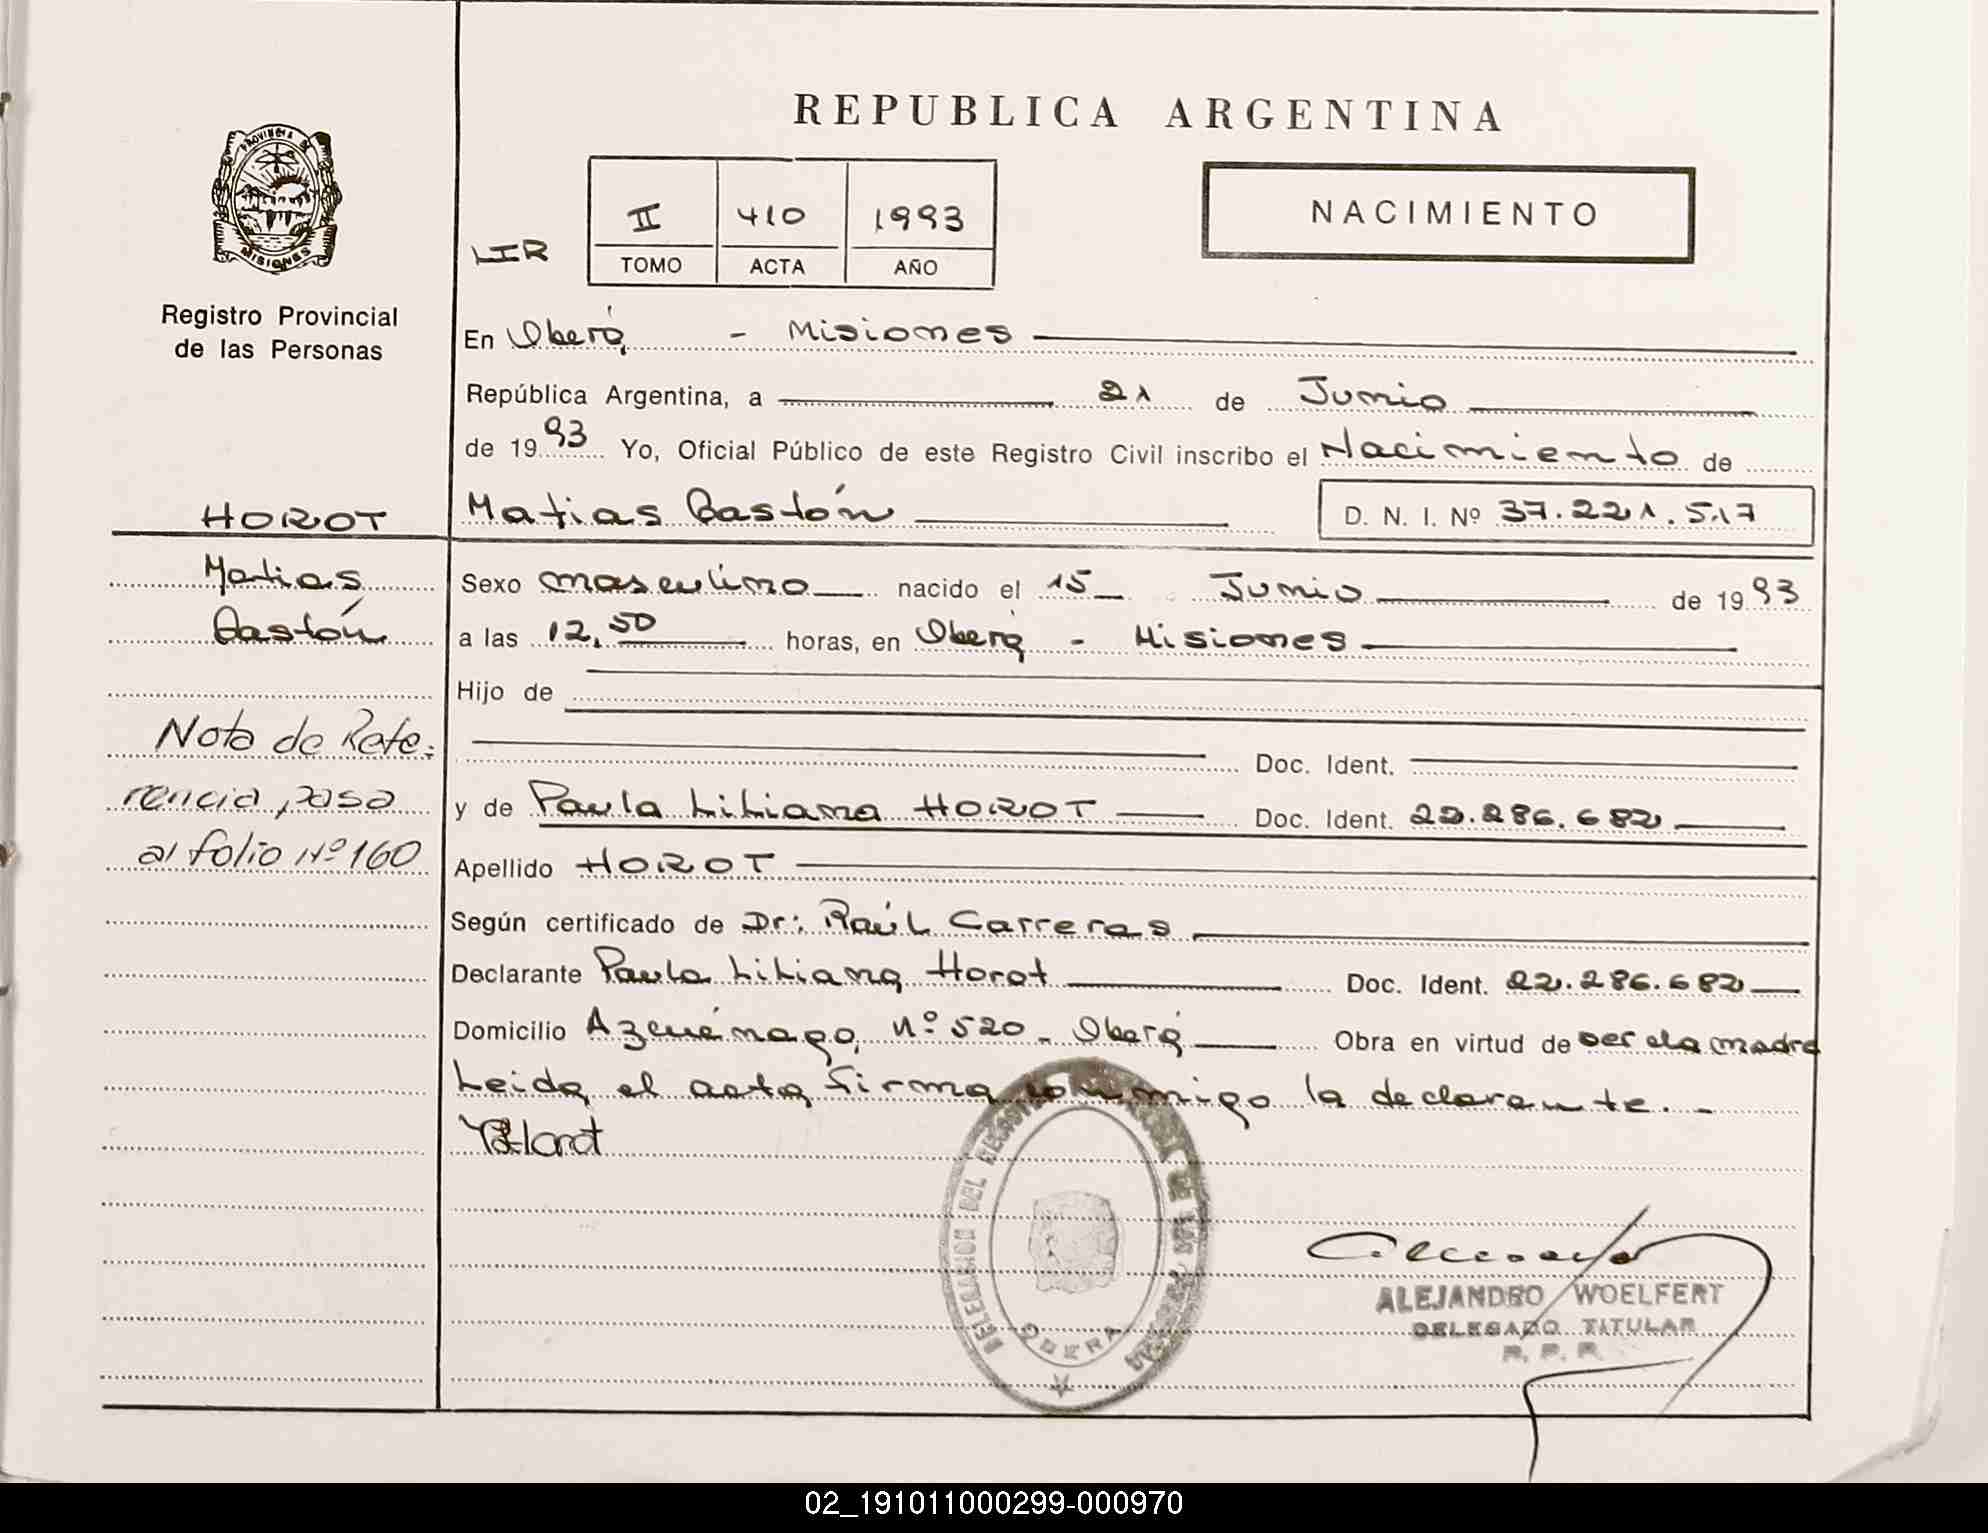 REPUBLICA ARGENTINA
PROVINCIA DE
MISIONES
Registro Provincial
de las Personas
LIR
II 410 1993
TOMO ACTA AÑO
NACIMIENTO
En Oberá - Misiones
República Argentina, a 21 de Junio
de 1993 Yo, Oficial Público de este Registro Civil inscribo el Nacimiento de
Matias Gastón D. N. I. Nº 37.221.517
HOROT
Matias
Gastón
Nota de Refe-
rencia, pasa
al folio Nº 160
Sexo masculino nacido el 15 Junio de 1993
a las 12,50 horas, en Oberá - Misiones
Hijo de
Doc. Ident.
y de Paula Liliana HOROT Doc. Ident. 22.286.682
Apellido HOROT
Según certificado de Dr: Raúl Carreras
Declarante Paula Liliana Horot Doc. Ident. 22.286.682
Domicilio Azcuénaga, Nº 520 - Oberá Obra en virtud de ser la madre
Leida el acta firma conmigo la declarante. -
Horot
DELEGACION DEL REGISTRO PROVINCIAL DE LAS PERSONAS
OBERA
ALEJANDRO WOELFERT
DELEGADO TITULAR
R. P. P.
02_191011000299-000970